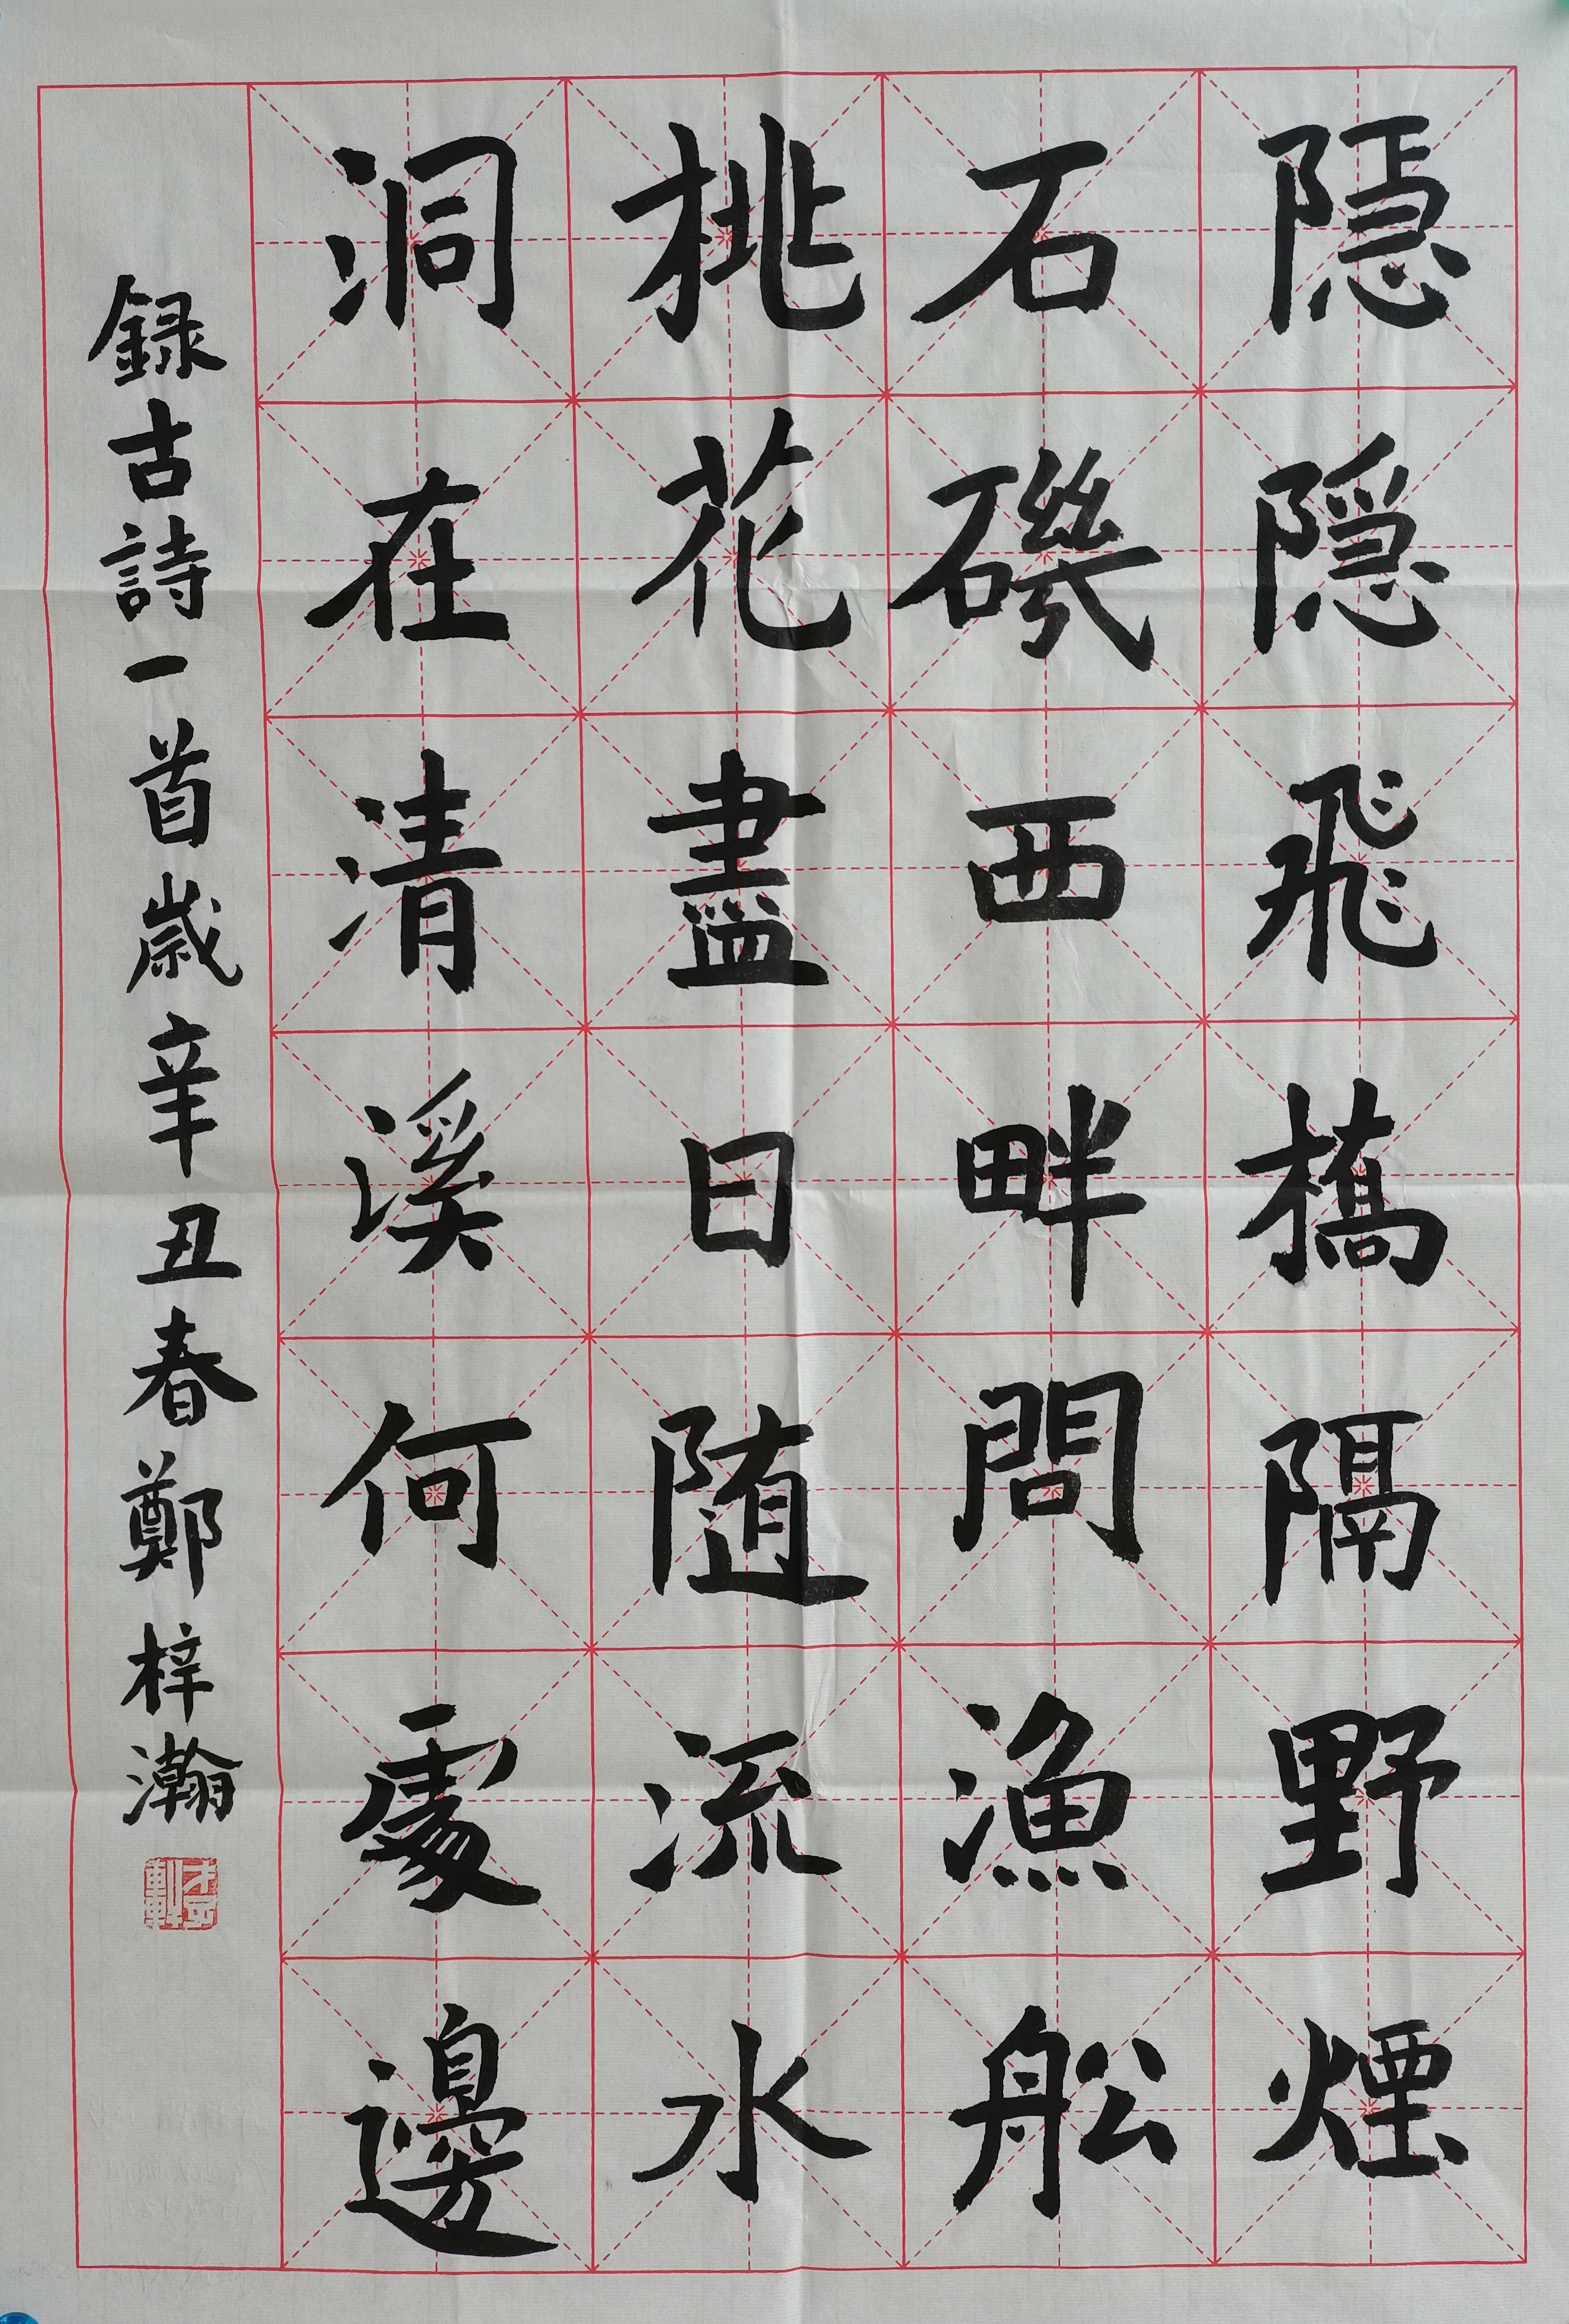 隱隱飛橋隔野煙
石磯西畔問漁船
桃花盡日随流水
洞在清溪何處邊
録古詩一首歲辛丑春鄭梓瀚